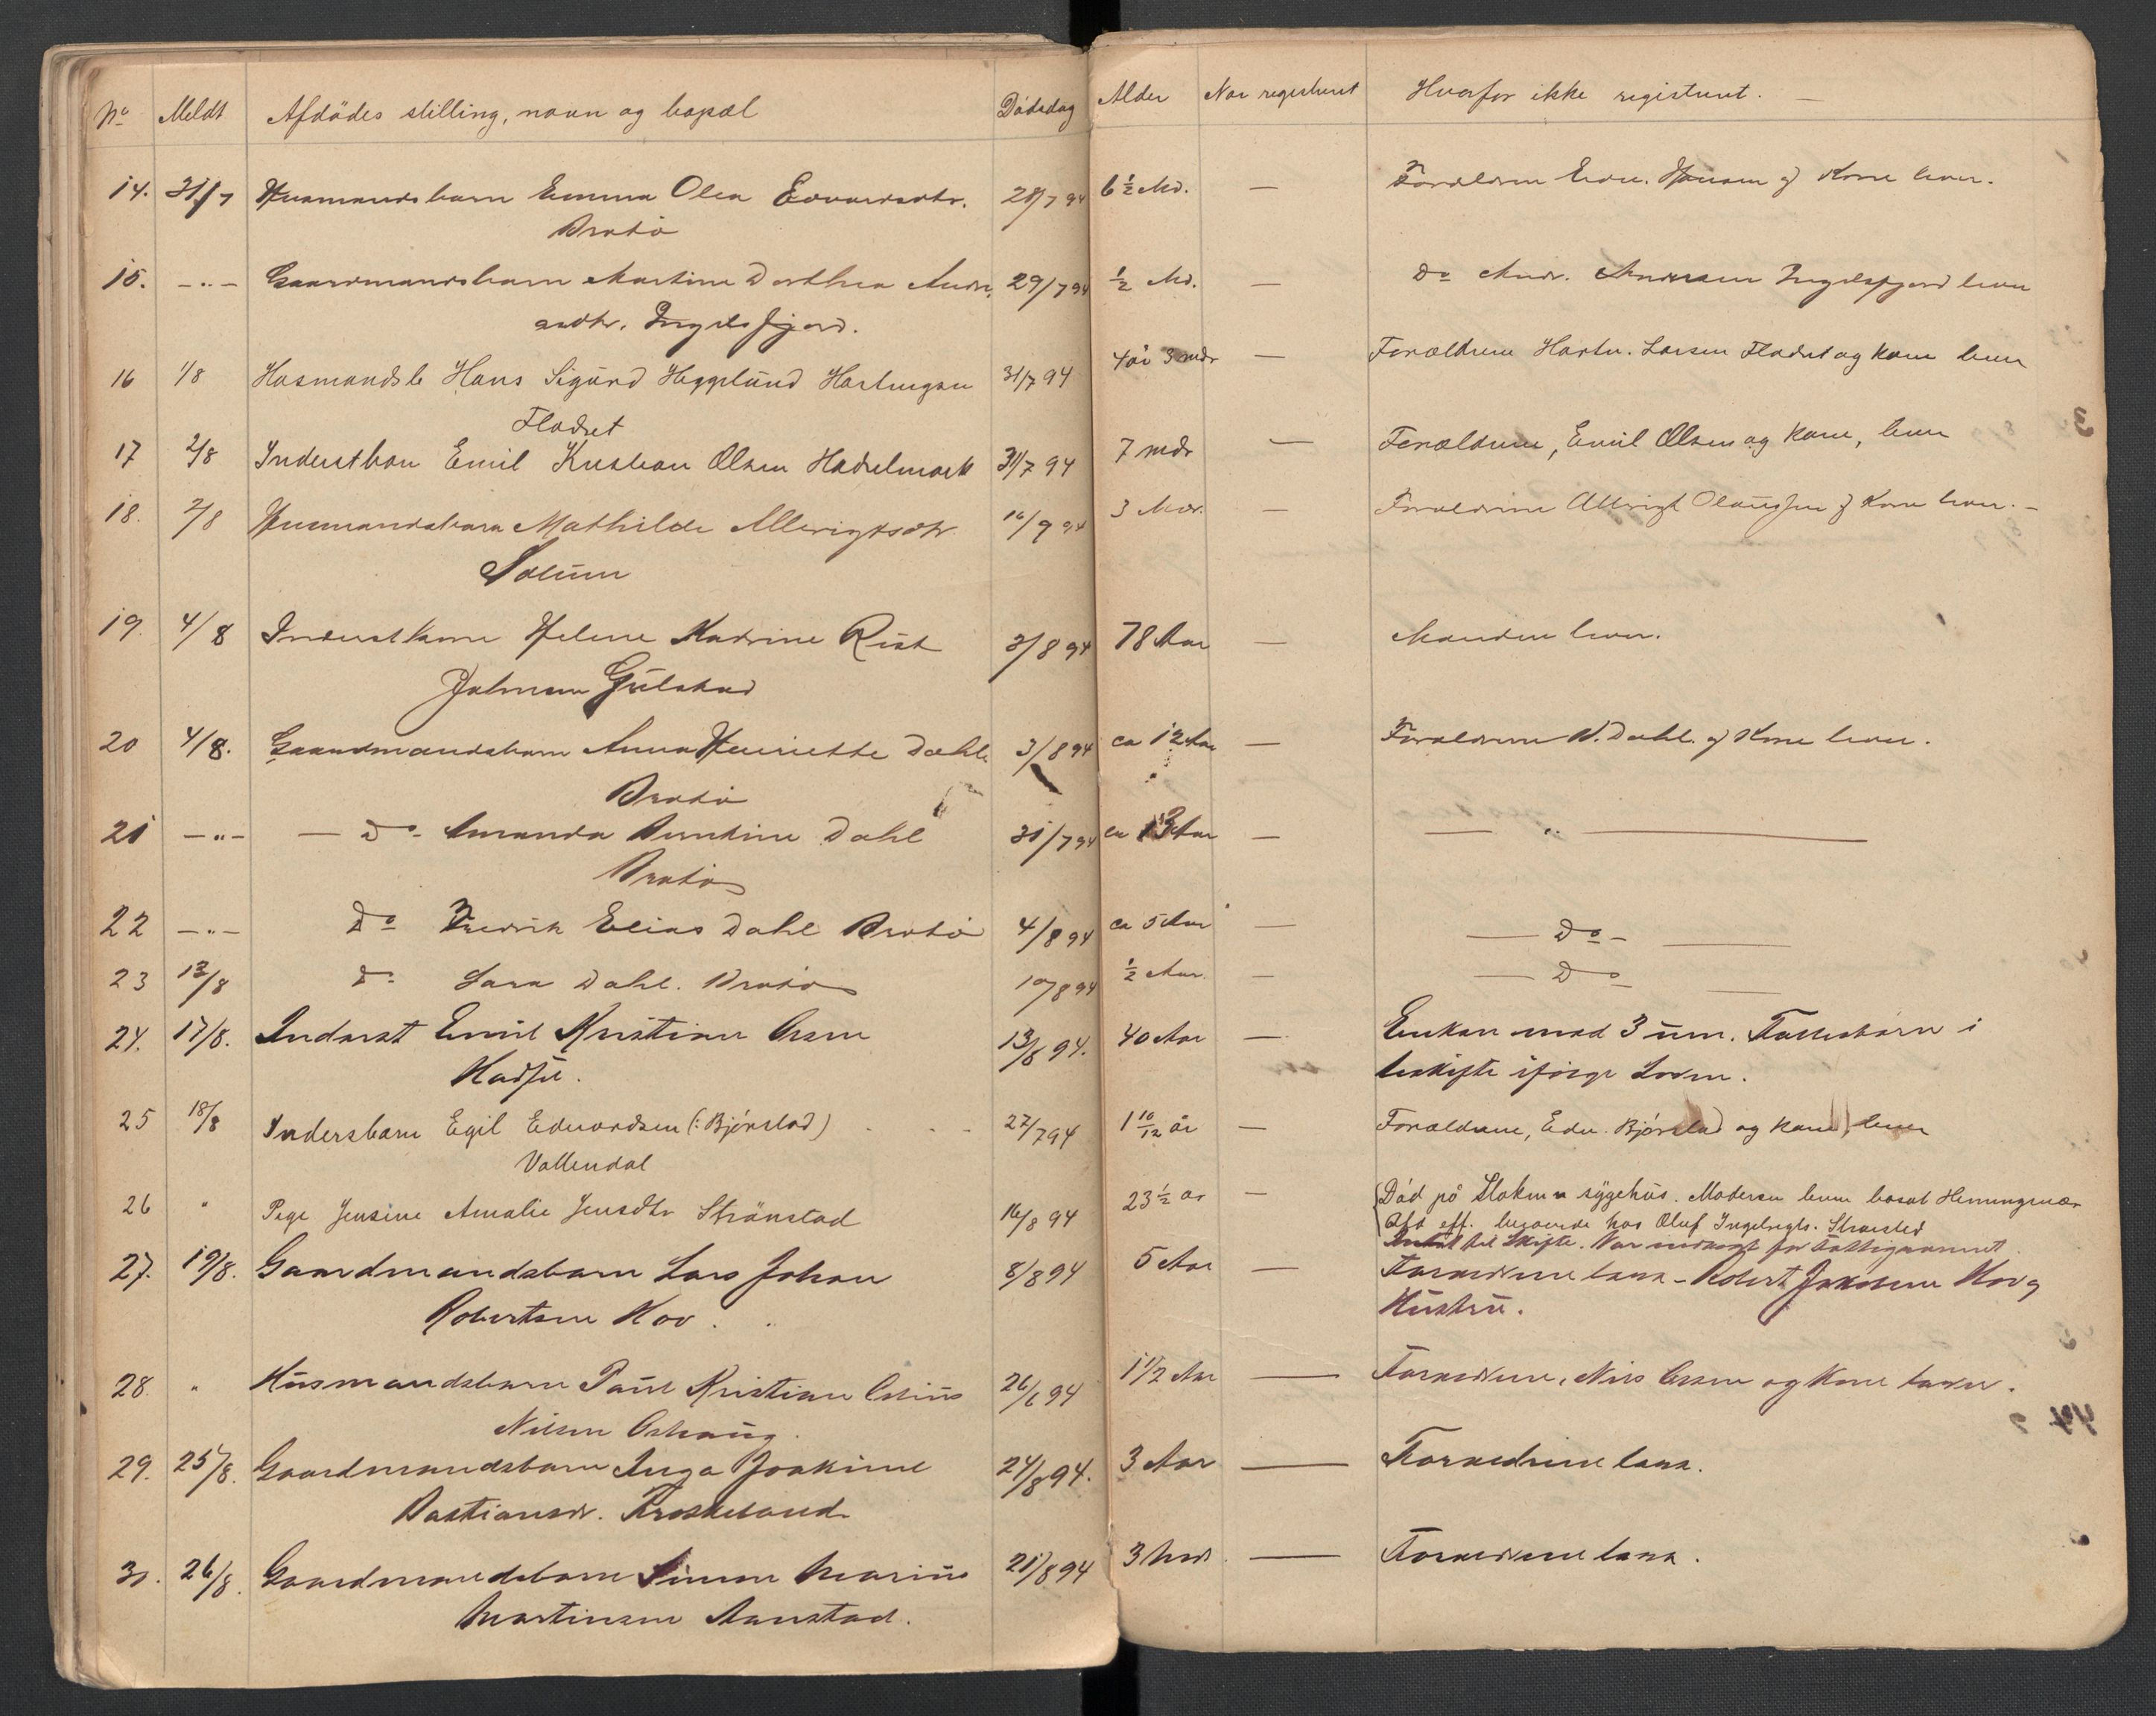 No Meldt Afdödes stilling, navn og bopæl Dödsdag Alder Nar registrert Hvorfor ikke registrert. —
14. 31/7 Husmandsbarn Emma Olea Edvardsdtr. 28/7 94 6 1/2 Md. — Forældrene Edv. Hansen og Kone lever.
Bratö
15. —"— Gaardmandsbarn Martine Dorthea Andr. 29/7 94 1/2 Md. — Do Andr. Andersen Ingelsfjord lever
asdtr. Ingelsfjord.
16 1/8 Husmandsb Hans Sigurd Heggelund Hartvigsen 31/7 94 4 år 3 mdr — Forældrene Hartv. Larsen Fladset og kone lever
Fladset
17 2/8 Inderstbarn Emil Kristian Olsen Hadselmark 31/7 94 7 mdr — Forældrene, Emil Olsen og kone, lever
18. 2/8 Husmandsbarn Mathilde Albrigtsdtr. 94 3 Mdr. — Forældrene Albrigt og Kone lever. —
19. 4/8 Inderstkone Helene Katrine Rist 2/8 94 78 Aar — Manden lever.
Gulstad
20 4/8. Gaardmandsbarn Anna Henriette Dahl 3/8 94 ca 12 Aar — Forældrene N. Dahl. og Kone lever.
Bratö
21 —"— — Do Amanda Dahl 31/7 94 ca 13 Aar — — " —
Bratö
22 —"— Do Fredrik Elias Dahl Bratö 4/8 94 ca 5 Aar — — Do —
23 13/8 Do Sara Dahl. Bratö 10/8 94 1/2 Aar. — — Do —
24. 17/8. Inderst Emil Kristian Olsen 13/8 94. 40 Aar — Enken med 3 um. Fællesbørn i
Hadsel. uskifte ifølge Loven.
25 18/8 Indersbarn Egil Edvardsen (: Bjørslad) 27/7 94 1 10/12 år — Forældrene, Edv. Bjørslad og kone, lever
Vollendal
26 " Pige Jensine Amalie Jensdtr Strånstad 16/8 94 23 1/2 år — Död på Stokm. sygehus. Moderen lever bosat Henningsvær
Afd eff. beroende hos Oluf Ingebrigts. Straństad
til Skifte. Var indlagt for Fattigvæsenet
27. 19/8. Gaardmandsbarn Lars Johan 8/8 94 5 Aar — Forældrene leva - Robert Jakobsen Hov og
Robertsen Hov. Hustru.
28. " Husmandsbarn Paul Kristian 26/6 94 1 1/2 Aar — Forældrene, Nils Olsen og Kone lever.
Nilsen Oshaug.
29. 25/8. Gaardmandsbarn Inga Joakime 24/8 94. 3 Aar — Forældrene leva.
Bastiansdr. Froskeland
30. 26/8. Gaardmandsbarn Simon Marius 21/8 94 3 Mdr. — Forældrene leva.
Martinsen Aanstad.